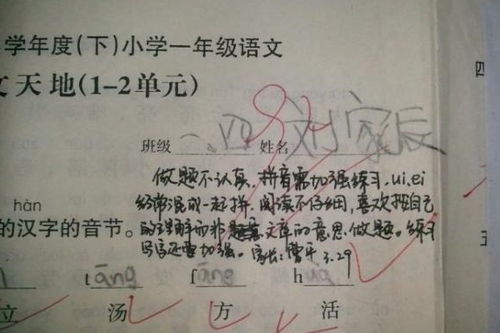 学年度(下)小学一年级语文
文天地(1-2单元)
班级 一.四 姓名 刘家辰
做题不认真,拼音需加强练习,ui.ei
经常混成一起拼,阅读不仔细,喜欢按自己
hàn
的汉字的音节。
的理解而非文章的意思做题。练习
写字还要加强。家长:曹平 3.29
tāng f h
立 汤 方 活
四
五